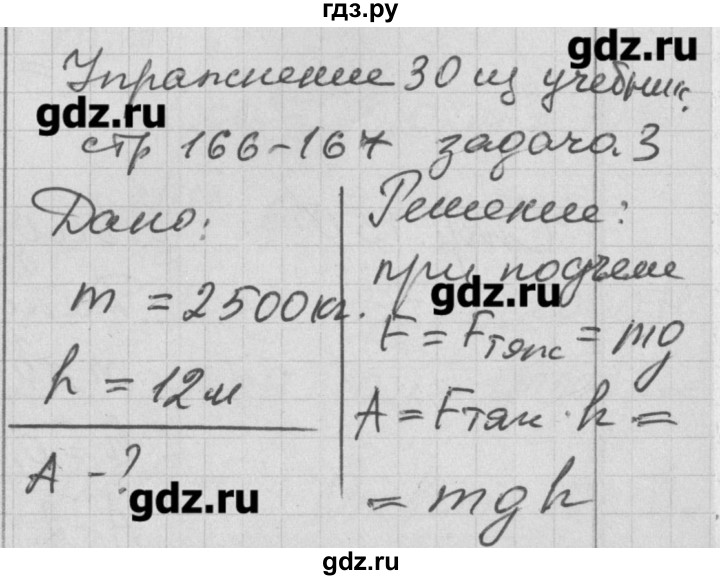 гдз.ру
gdz.ru
Упражнение 30 из учебник.
gdz.ru
стр 166-167 задача 3
Дано:
m = 2500 кг.
h = 12 м
A - ?
gdz.ru
Решение:
при подъеме
gdz.ru
F = Fтяж = mg
A = Fтяж · h =
= mgh
gdz.ru